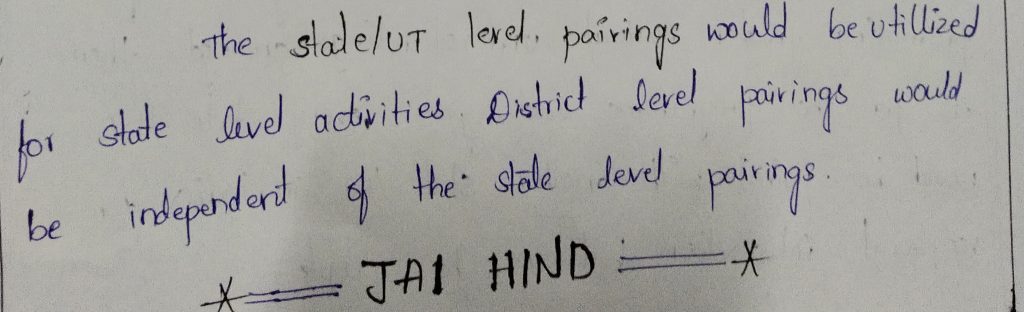 The state/UT level. pairings would be utillized
for state level activities. District level pairings would
be independent of the state level pairings.
JAI HIND